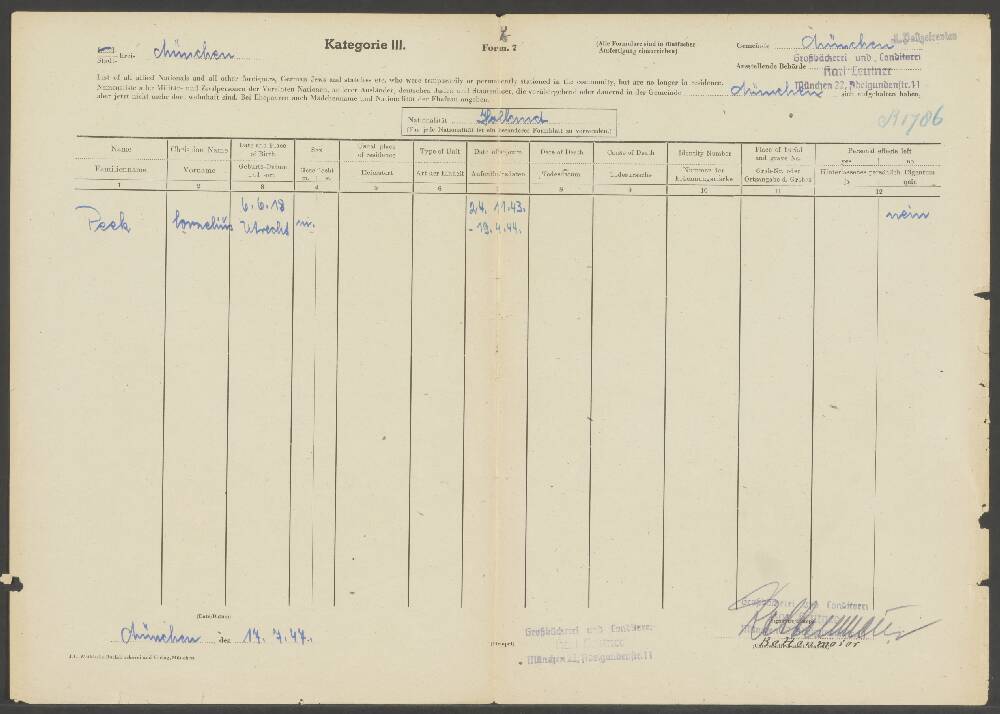 Kreis München
Stadt-
Kategorie III.
Form. 7
(Alle Formulare sind in fünffacher
Ausfertigung einzureichen)
Gemeinde München
Großbäckerei und Conditorei
Ausstellende Behörde
Karl Leutner
München 22, Adelgundenstr. 11
List of all allied Nationals and all other foreigners, German Jews and stateless etc. who were temporarily or permanently stationed in the community, but are no longer in residence.
Namensliste aller Militär- und Zivilpersonen der Vereinten Nationen, anderer Ausländer, deutschen Juden und Staatenloser, die vorübergehend oder dauernd in der Gemeinde München sich aufgehalten haben,
aber jetzt nicht mehr dort wohnhaft sind. Bei Ehepaaren auch Mädchenname und Nationalität der Ehefrau angeben.
Nationalität Holland
(Für jede Nationalität ist ein besonderes Formblatt zu verwenden.)
Name Christian Name Date and Place of Birth Sex Usual place of residence Type of Unit Date of Death Cause of Death Identity Number Place of burial and grave No. Personal effects left yes no
Familienname Vorname Geburts-Datum Geschlecht m. w. Heimatort Art der Einheit Aufenthaltsdaten Todesdatum Todesursache Nummer der Erkennungsmarke Grab-Nr. oder Ortsangabe d. Grabes Hinterlassenes persönlich. Eigentum ja nein
1 2 3 4 5 6 7 8 9 10 11 12
Peek Cornelius 6.6.18 Utrecht m. 24.11.43. - 19.4.44. nein
(Date/Datum)
München den 17.7.47.
(Stempel)
Großbäckerei und Conditorei
München 22, Adelgundenstr. 11
Großbäckerei und Conditorei